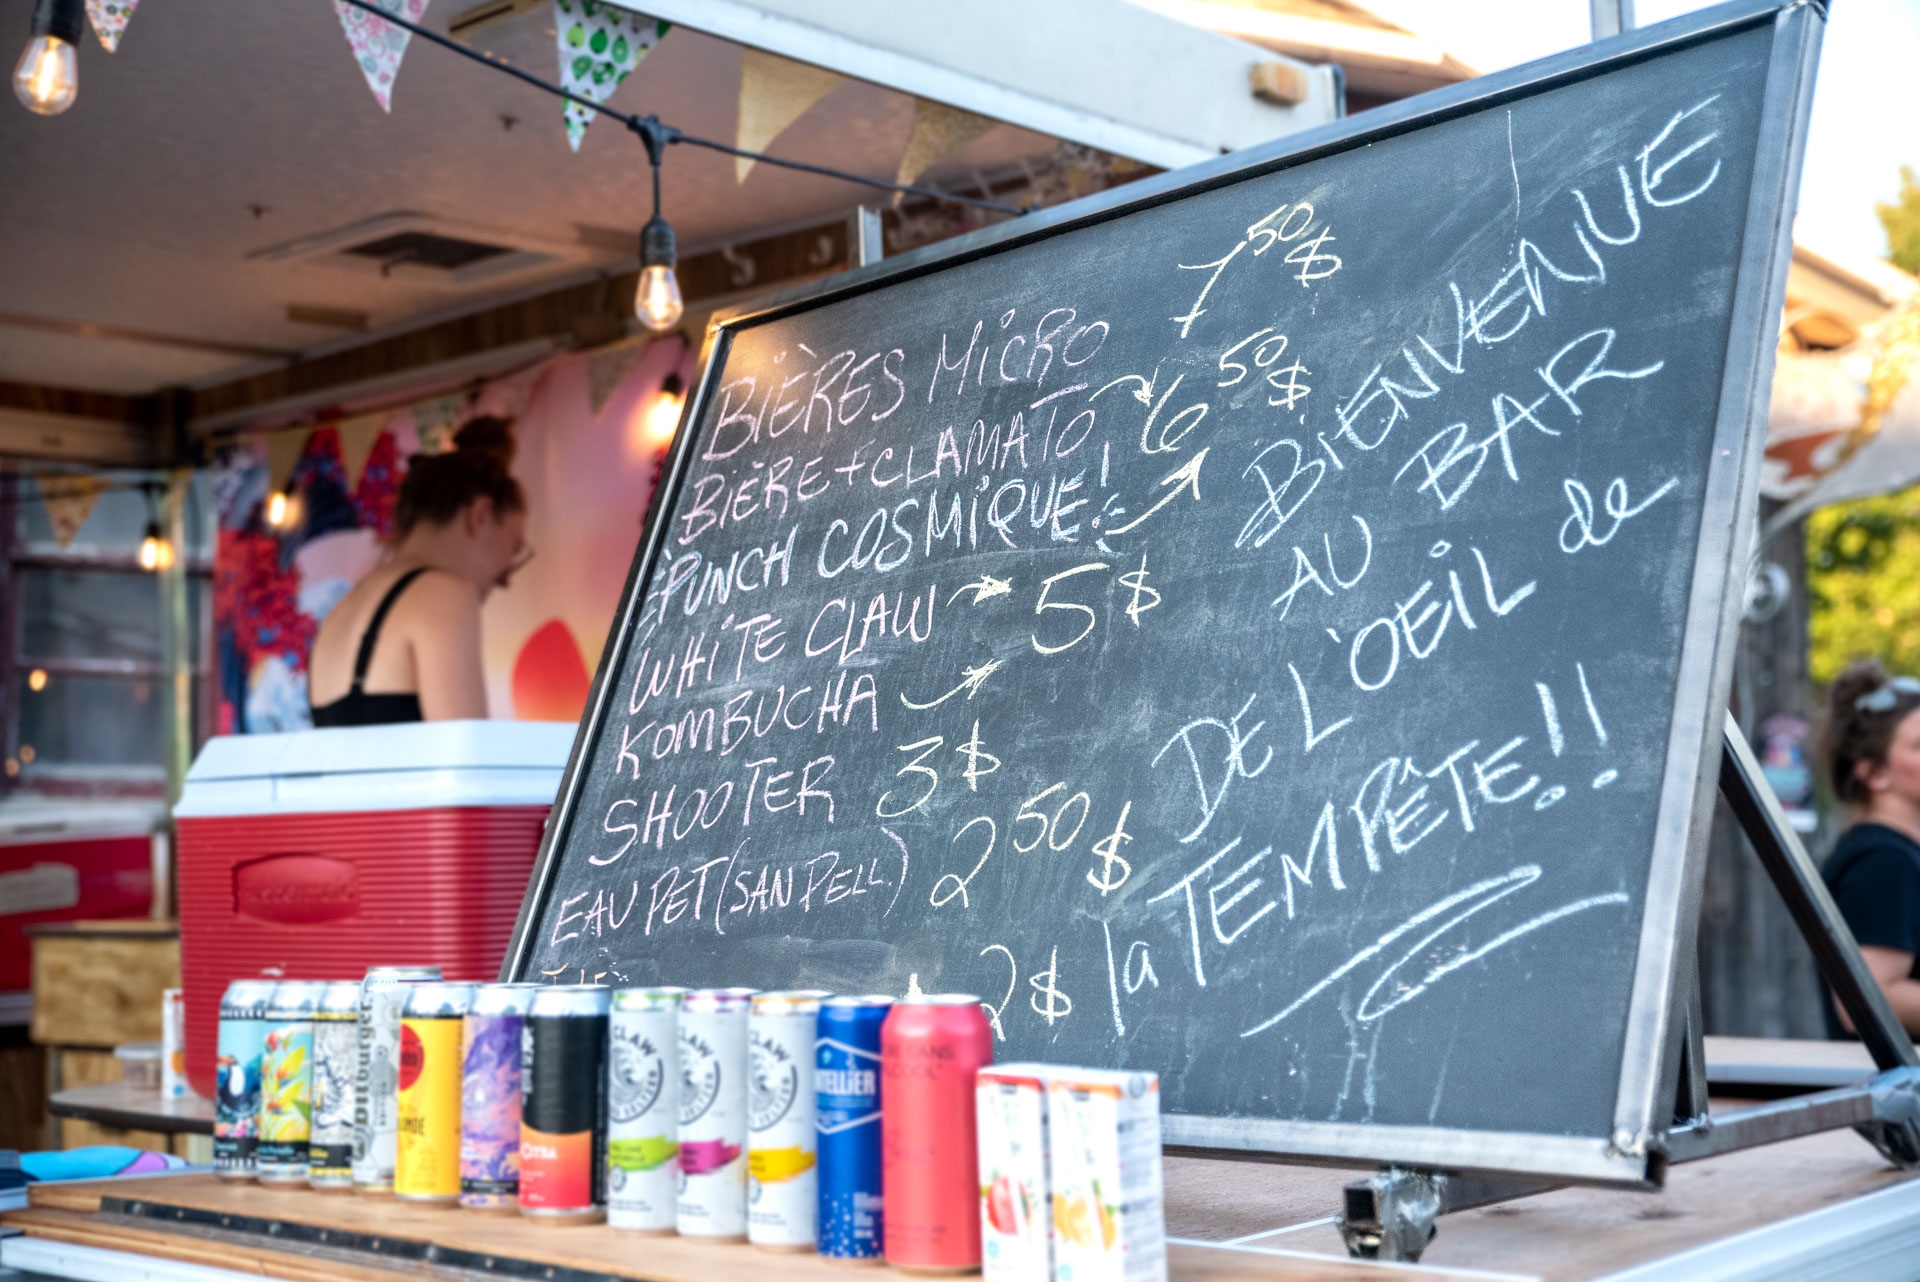 BIÈRES MICRO 7 50 $
BIÈRE + CLAMATO 6 50 $
PUNCH COSMIQUE!
WHITE CLAW 5 $
KOMBUCHA
SHOOTER 3 $
EAU PET (SAN PELL.) 2 50 $
2 $
BIENVENUE
AU BAR
DE L'OEIL de
la TEMPÊTE!!
Bitburger
CLAW
CLAW
CLAW